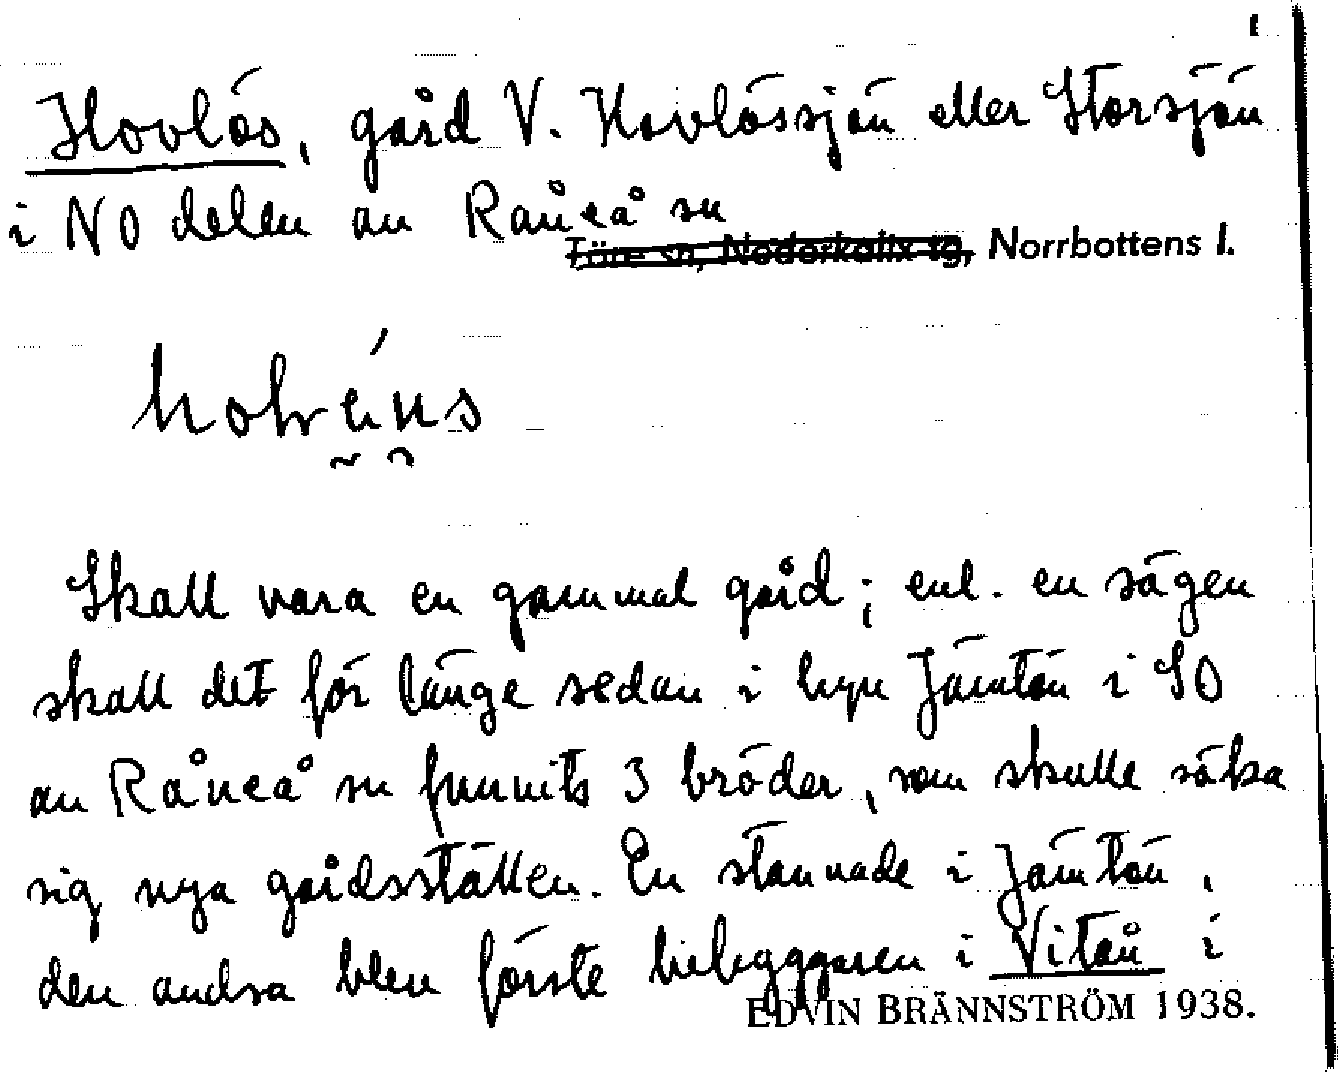 1
Hovlös, gård V. Hovlössjön eller Storsjön
i NO delen av Råneå sn
Töre sn, Nederkalix tg, Norrbottens l.
Skall vara en gammal gård; enl. en sägen
skall det för länge sedan i byn Jämtön i SO
av Råneå sn funnits 3 bröder, som skulle söka
sig nya gårdsställen. En stannade i Jämtön,
den andra blev förste bebyggaren i Vitån i
EDVIN BRÄNNSTRÖM 1938.